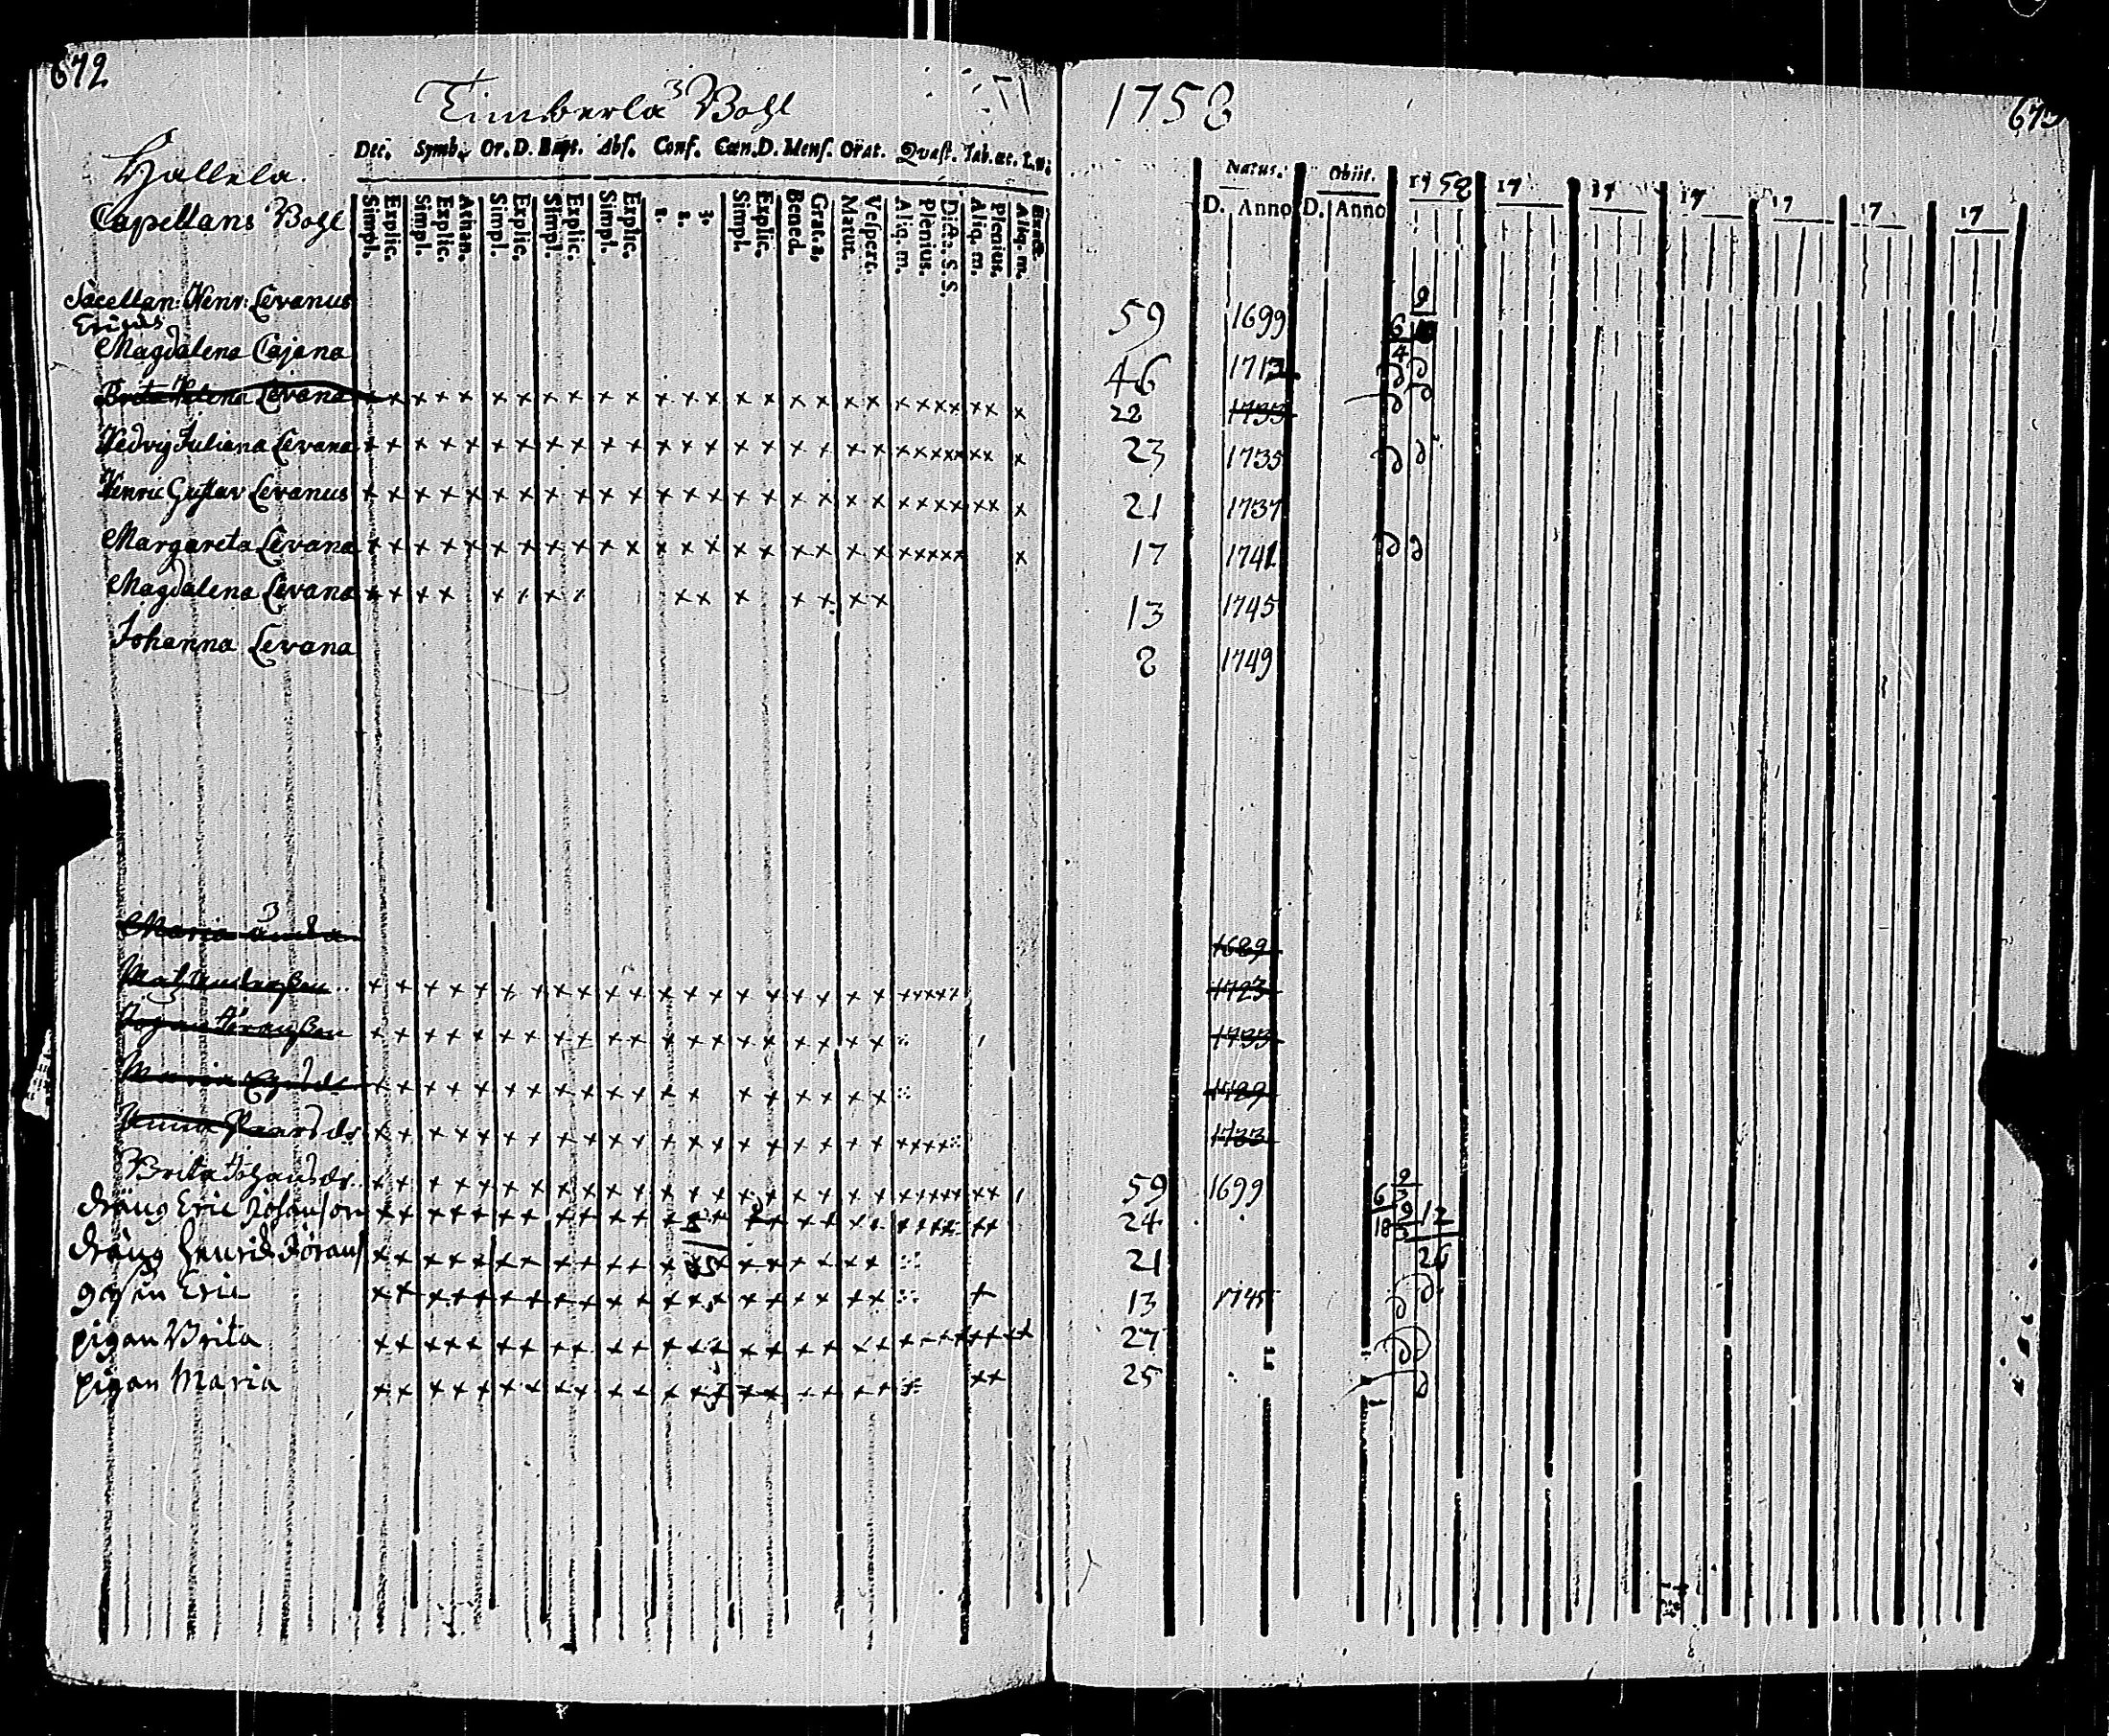 672
Timberla Bohl
1758
Hallela.
Capellans Bohl
Dec. Symb. Or. D. Bapt. Abs. Conf. Cœn. D. Mens. Orat. Quæst. Tab. œc.
Simpl. Explic. Simpl. Explic. Athan. Simpl. Explic. Simpl. Explic. Simpl. Explic. 1. 2. 3. Simpl. Explic. Bened. Grat. a. Matut. Vespert. Aliq. m. Plenius. Dicta. S. S. Aliq. m. Plenius. Aliq. m.
Natus. Obiit. 1758 17 17 17 17 17 17
D. Anno D. Anno
Sacellan: Henr: Levanus 59 1699
Ericus
Magdalena Cajana 46 1712
Brita Helena Levana 22 1735
Hedvig Juliana Levana 23 1735
Henric Gustav Levanus 21 1737
Margareta Levana 17 1741
Magdalena Levana 13 1745
Johanna Levana 8 1749
Maria 1689
1723
1733
Maria 1729
Anna 1733
Brita Johansdr. 59 1699
dräng Eric Johansson 24
dräng Henrik Jörans 21
gåssen Eric 13 1745
pigan Brita 27
pigan Maria 25